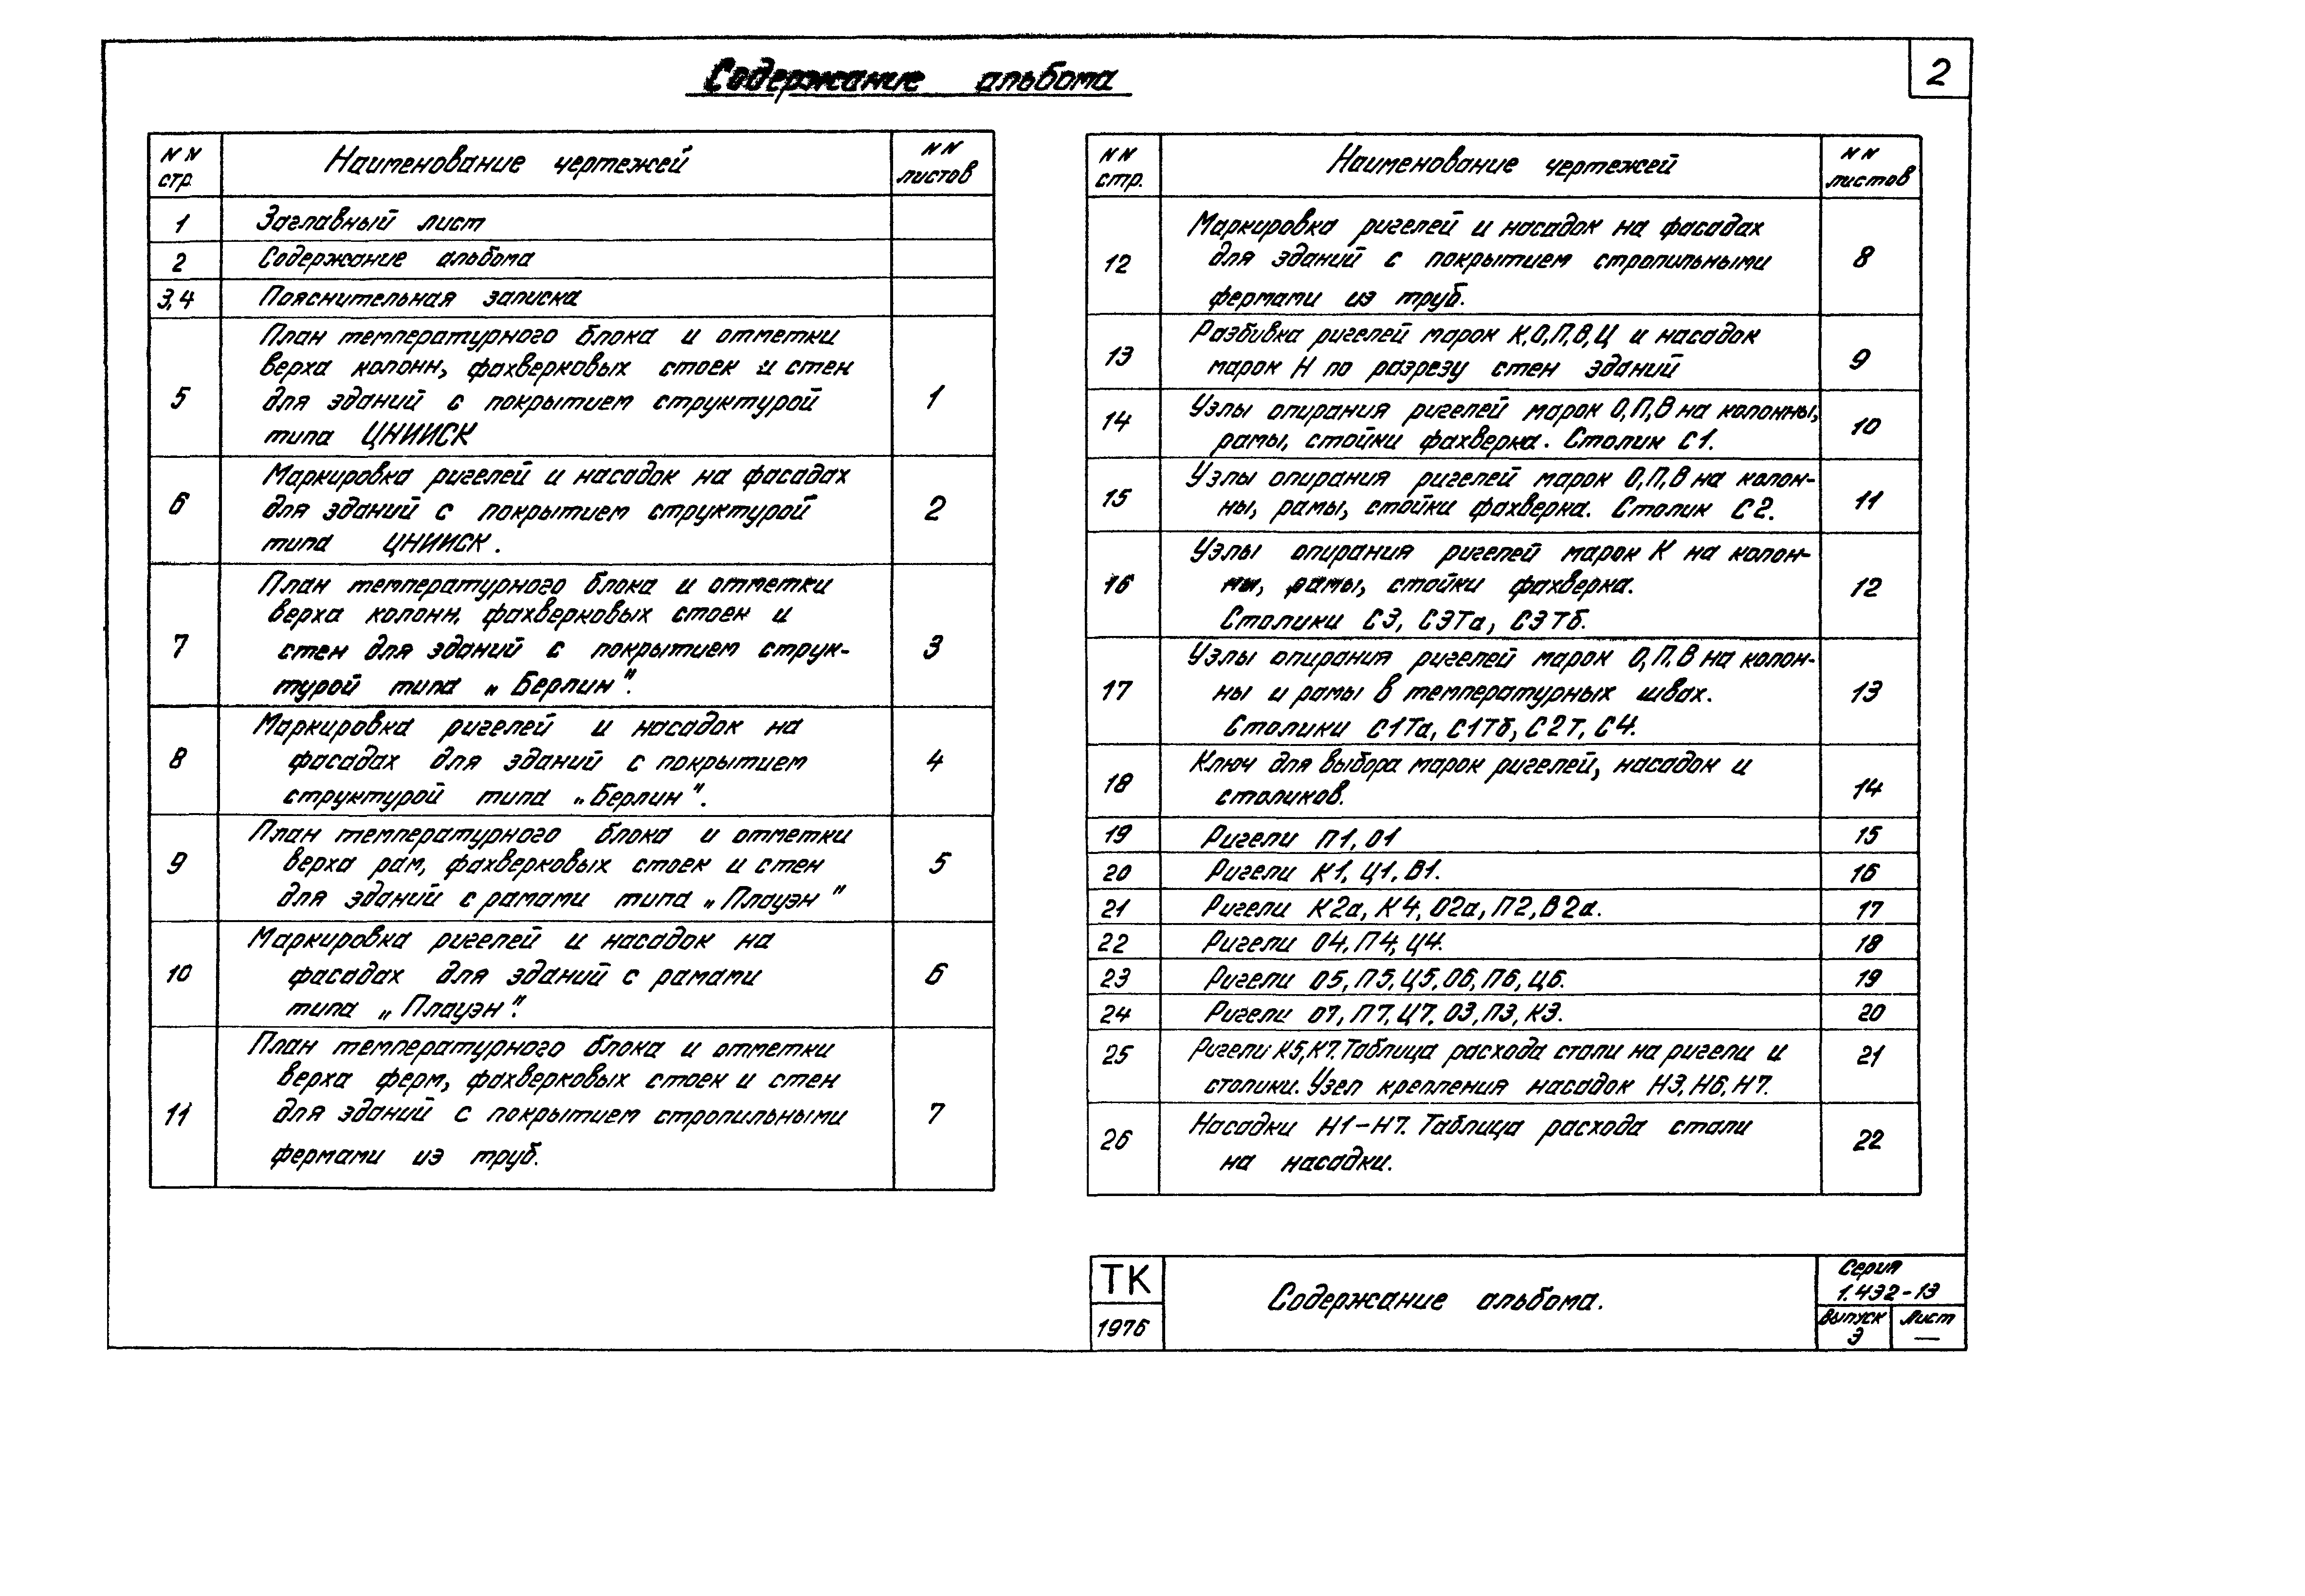 Содержание альбома
2
N N стр.
Наименование чертежей
N N листов
1 Заглавный лист
2 Содержание альбома
3,4 Пояснительная записка
План температурного блока и отметки
верха колонн, фахверковых стоек и стен
5 для зданий с покрытием структурой 1
типа ЦНИИСК
Маркировка ригелей и насадок на фасадах
6 для зданий с покрытием структурой 2
типа ЦНИИСК.
План температурного блока и отметки
верха колонн, фахверковых стоек и
7 стен для зданий с покрытием струк- 3
турой типа „Берлин".
Маркировка ригелей и насадок на
8 фасадах для зданий с покрытием 4
структурой типа „Берлин".
План температурного блока и отметки
9 верха рам, фахверковых стоек и стен 5
для зданий с рамами типа „Плауэн"
Маркировка ригелей и насадок на
10 фасадах для зданий с рамами 6
типа „Плауэн".
План температурного блока и отметки
верха ферм, фахверковых стоек и стен
11 для зданий с покрытием стропильными 7
фермами из труб.
N N стр.
Наименование чертежей
N N листов
Маркировка ригелей и насадок на фасадах
12 для зданий с покрытием стропильными 8
фермами из труб.
Разбивка ригелей марок К,О,П,В,Ц и насадок
13 марок Н по разрезу стен зданий 9
Узлы опирания ригелей марок О,П,В на колонны,
14 рамы, стойки фахверка. Столик С1. 10
Узлы опирания ригелей марок О,П,В на колон-
15 ны, рамы, стойки фахверка. Столик С2. 11
Узлы опирания ригелей марок К на колон-
16 ны, рамы, стойки фахверка. 12
Столики С3, С3Та, С3Тб.
Узлы опирания ригелей марок О,П,В на колон-
17 ны и рамы в температурных швах. 13
Столики С1Та, С1Тб, С2Т, С4.
Ключ для выбора марок ригелей, насадок и
18 столиков. 14
19 Ригели П1, О1 15
20 Ригели К1, Ц1, В1. 16
21 Ригели К2а, К4, О2а, П2, В2а. 17
22 Ригели О4, П4, Ц4. 18
23 Ригели О5, П5, Ц5, О6, П6, Ц6. 19
24 Ригели О7, П7, Ц7, О3, П3, К3. 20
25 Ригели К5, К7. Таблица расхода стали на ригели и 21
столики. Узел крепления насадок Н3, Н6, Н7.
Насадки Н1-Н7. Таблица расхода стали
26 на насадки. 22
ТК
1976
Содержание альбома.
Серия
1.432-13
Выпуск
3
Лист
—